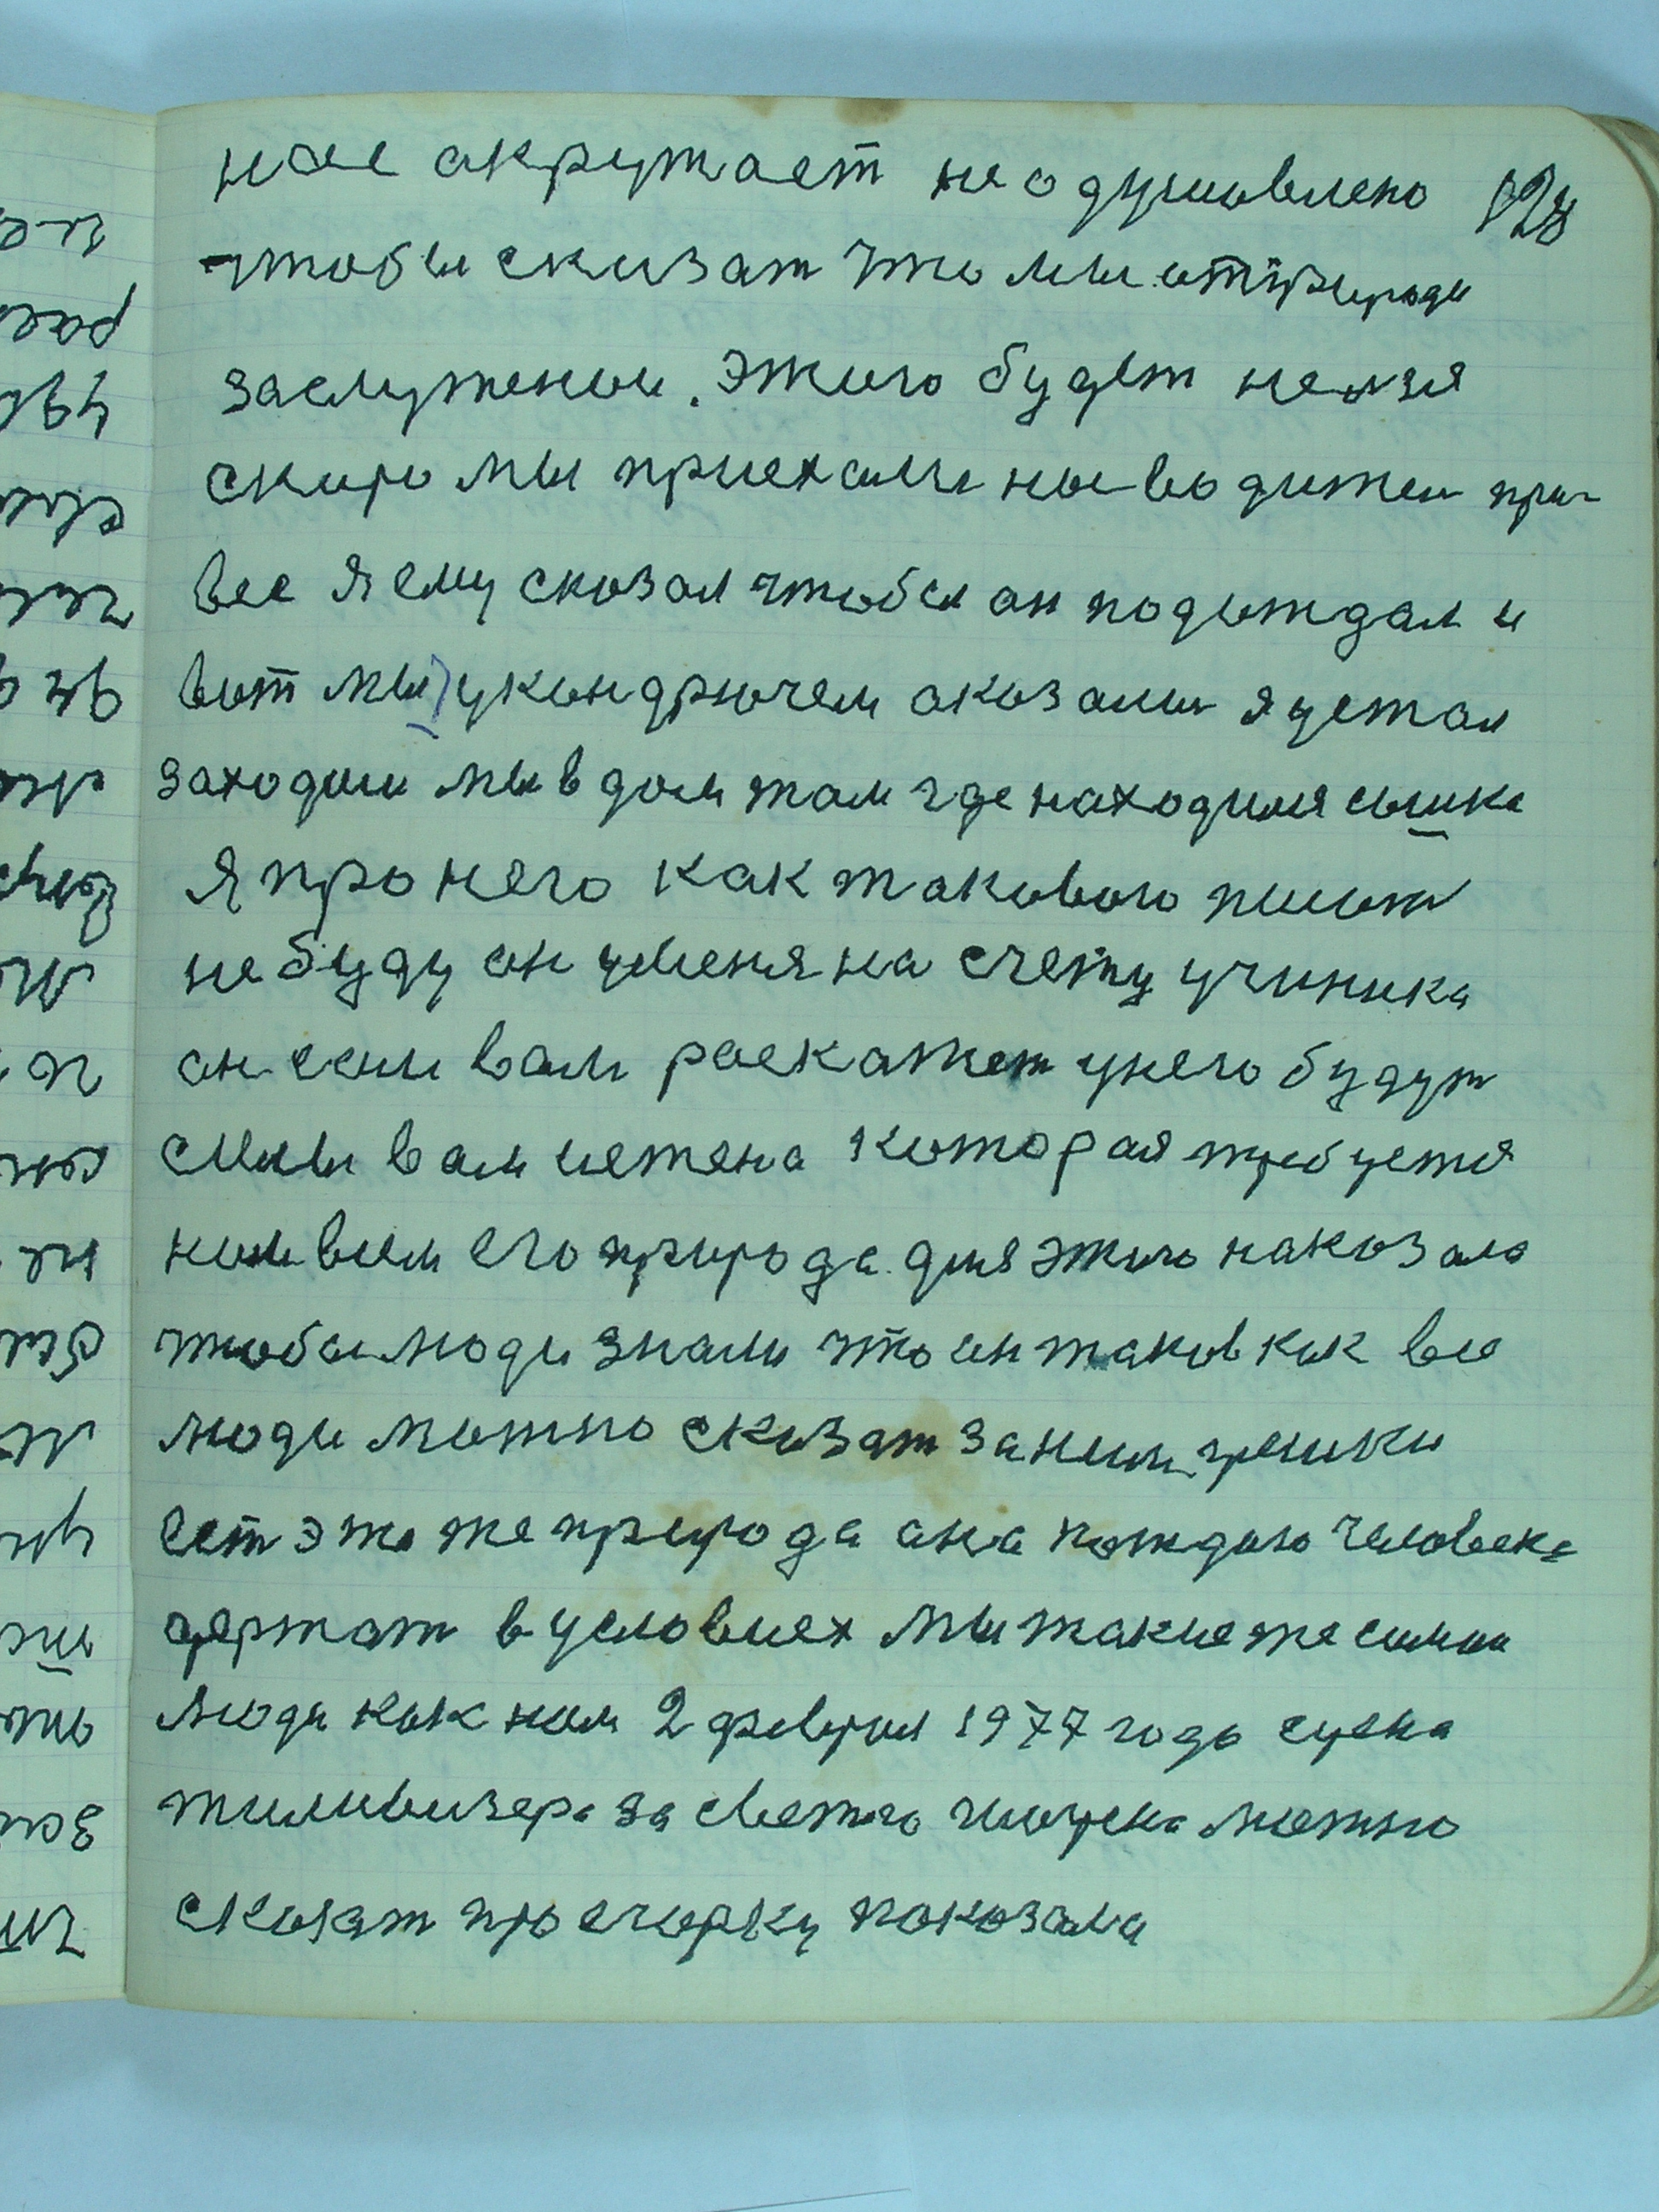 128
нас акружает неодушовлено
чтобы сказат что мы от природы
заслужены. Этого будет нелзя
скоро мы приехали новводители при-
вее я ему сказал чтобы он подождал и
вот мы у кондрючем оказали я устал
заходим мы в дом там где находился сышка
я про него как такового писат
не буду он у меня на счету ученика
он сам вам раскажет у него будут
силы вам истена которая требуется
ним всем его природа для этого наказала
чтобы люди знали что он таков как все
люди можно сказат за ним грешки
ест это же природа она каждого человека
держат в условиех мы такие же самые
люди как нам 2 феврал 1977 года сцена
тиливизера за светого человека можно
сказат про егорку показала